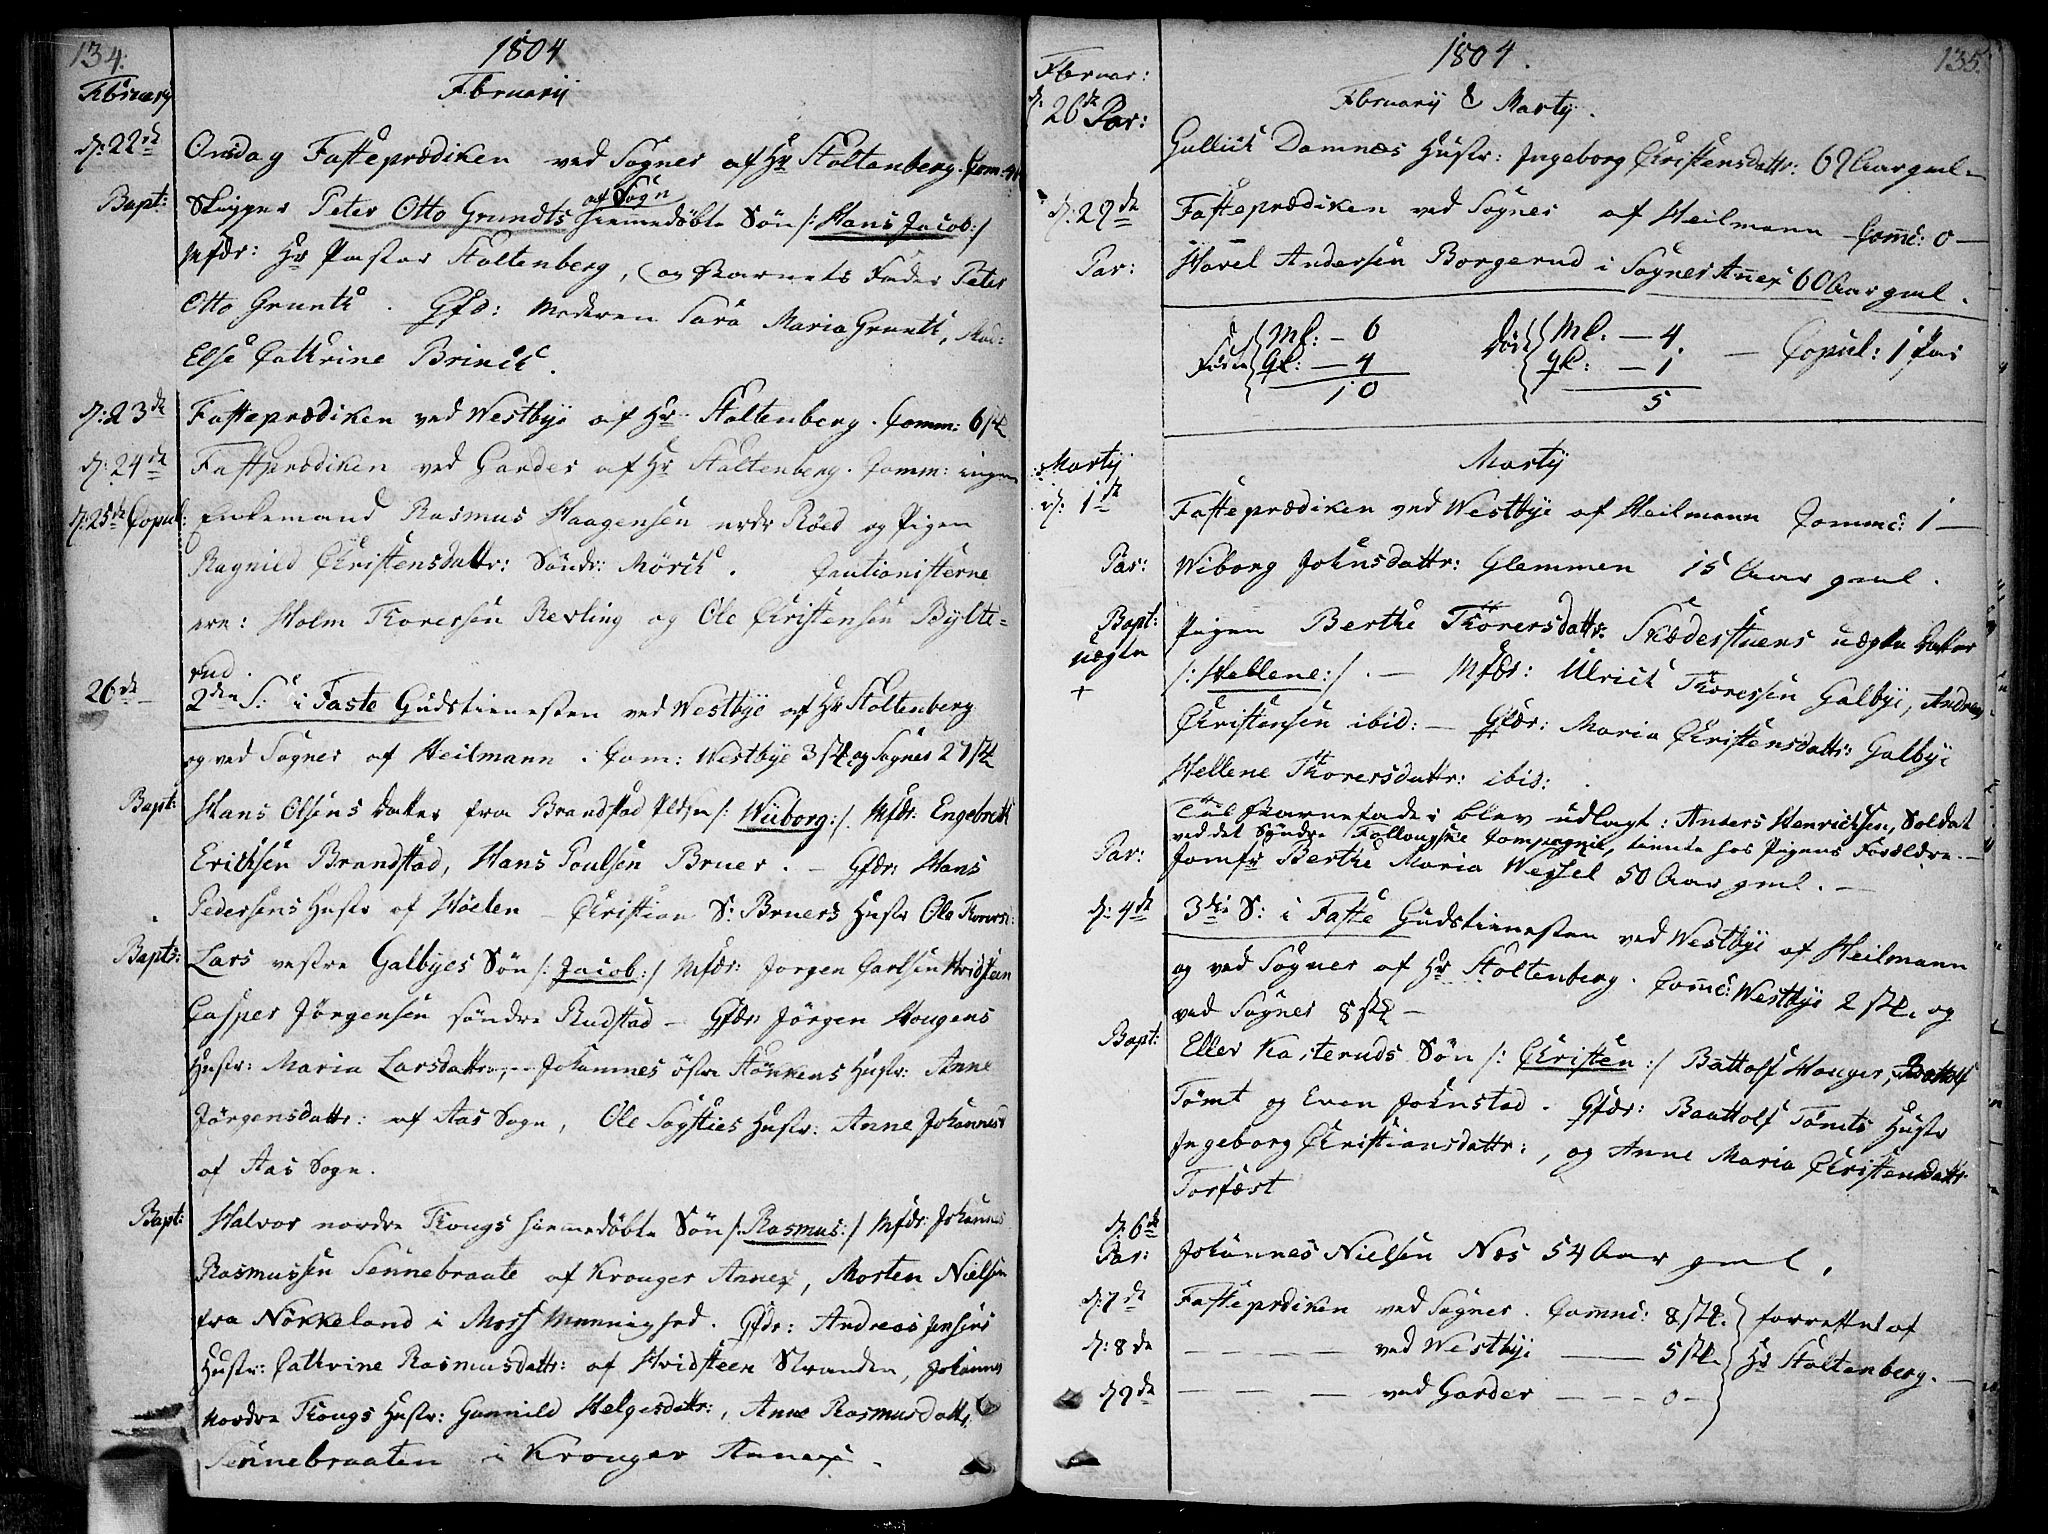 134.
1804
February
February
d: 22de
Onsdag Fasteprædiken ved Sogner af Hr Stoltenberg. Com:
af Sogn
Bapt: Skipper Peter Otto Grundts hiemmedöbte Sön /: Hans Jacob :/
Mfdr: Hr Pastor Stoltenberg, og Barnets Fader Peter
Otto Grunth. Gfd: Moderen Sara Maria Grunth, Mad:
Else Cathrine Brinch.
d: 23de Fasteprædiken ved Westbye af Hr Stoltenberg. Comm: 6 stk
d: 24de Fasteprædiken ved Garder af Hr Stoltenberg. Comm: ingen
d: 25de Copul: Enkemand Rasmus Haagensen nedr Röed og Pigen
Ragnild Christensdattr: Söndr: Mörch. Cautionisterne
ere: Holm Thoresen Revling og Ole Christensen Bylte-
rud.
26de 2den S: i Faste Gudstienesten ved Westbye af Hr Stoltenberg
og ved Sogner af Heilmann. Com: Westbye 3 stk og Sogner 27 stk
Bapt: Hans Olsens Datter fra Brandstad Pldsn /: Wiborg :/. Mfdr: Engebreth
Erichsen Brandstad, Hans Poulsen Bruer. - Gfdr: Hans
Pedersens Hustr af Höelen Christian S: Bruers Hustr Ole
Bapts: Lars vestre Galbyes Sön /: Jacob :/ Mfdr: Jörgen Carlsen Hvidsteen
Casper Jörgensen söndre Rudstad - Gfdr: Jörgen Hougens
Hustr: Maria Larsdattr, - Johannes östre Stökkens Hustr: Anne
Jörgensdattr: af Aas Sogn, Ole Sogsties Hustr: Anne Johannesd
af Aas Sogn.
Bapt: Halvor nordre Kougs hiemmedöbte Sön /: Rasmus :/ Mfdr: Johannes
Rasmussen Sennebraate af Kroger Annex, Morten Nielsen
fra Nökkeland i Moss Menighed. Gfdr: Andreas Jensens
Hustr: Cathrine Rasmusdattr: af Hvidsteen Stranden, Johannes
nordre Kougs Hustr: Gunnild Helgesdattr:, Anne Rasmusdattr
Sennebraaten i Kroger Annex.
1804.
135.
Februar:
February & Marty.
d: 26de Par:
Gullich Damnæs Hustr: Ingeborg Christensdattr: 69 Aar gml.
d: 29de Fasteprædiken ved Sogner af Heilmann - Comc: 0 -
Par: Havel Andersen Borgerud i Sogner Annex 60 Aar gml.
Födte { Ml: - 6 Död { Ml: - 4. - Copul: 1 Par
Qk: - 4 Qk: - 1
10 5
Marty
Marty
d: 1de Fasteprædiken ved Westbye af Heilmann Comc: 1 -
Par: Wiborg Johnsdattr: Glemmen 15 Aar gml.
Bapt: Pigen Berthe Thoresdattr: Skædestuens uægte Datter
uægte /: Hellene :/. - Mfdr: Ulrich Thoresen Galbye, Andreas
+
Christensen ibid: - Gfdr: Maria Christensdattr: Galbye
Hellene Thoresdattr: ibid:
Til Barnefader blev udlagt: Anders Henrichsen, Soldat
ved det Syndre Follougske Compagnie, tiente hos Pigens Forældre. -
Par: Jomfr Berthe Maria Wessel 50 Aar gml. -
d: 4de 3die S: i Faste Gudstienesten ved Westbye af Heilmann
og ved Sogner af Hr Stoltenberg. Comc: Westbye 2 stk. og
ved Sogner 8 stk -
Bapt: Eller Kasteruds Sön /: Christen :/ Battolf Houger, Battolf
Tömt og Even Johnstad. Gfdr: Baattolf Tömts Hustr
Ingeborg Christiansdattr:, og Anne Maria Christensdattr
Torfæst
d: 6de
Par: Johannes Nielsen Næs 54 Aar gml.
d: 7de Fasteprdiken ved Sogner. Comc: 8 stk. } forrettet af
d: 8de - - - - ved Westbye - 5 stk. } Hr Stoltenberg. -
d: 9de - - - ved Garder - - - 0 -